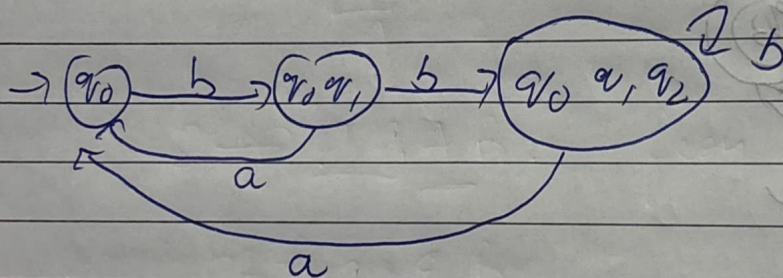 → q₀ b q₀ q₁ b q₀ q₁ q₂ b
a
a